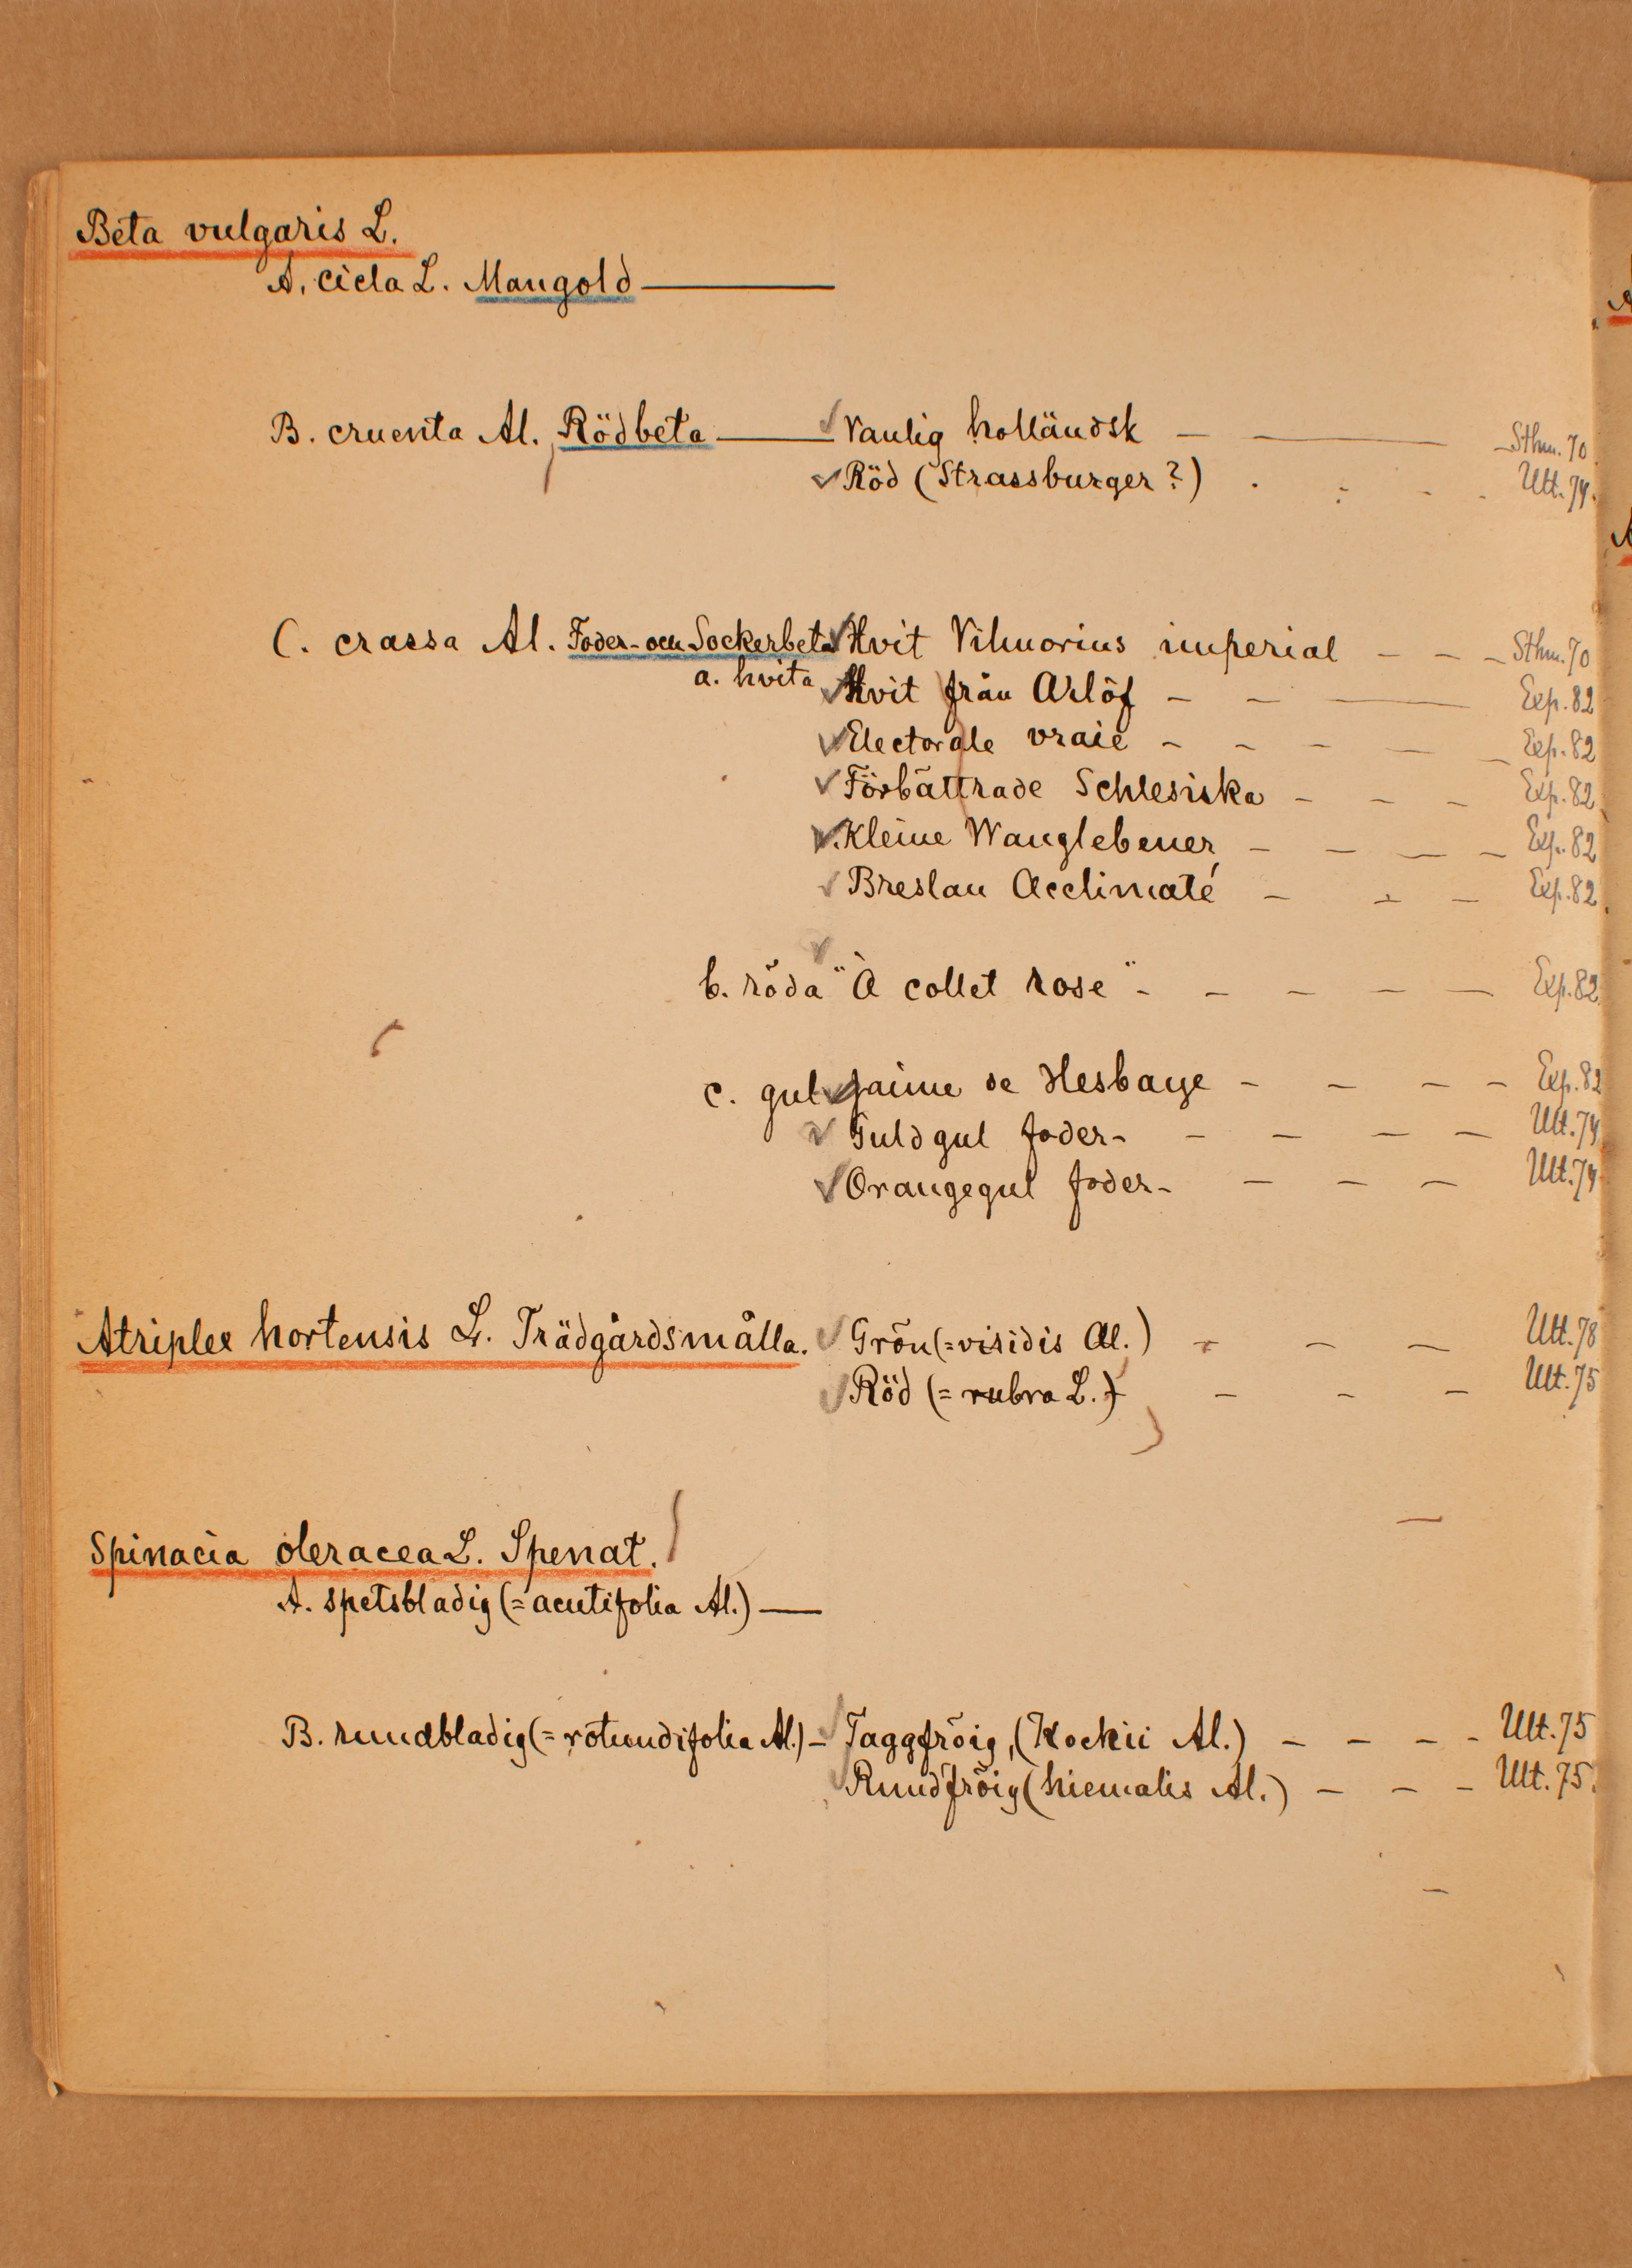 Beta vulgaris L.
A. cicla L. Mangold
B. cruenta Al. Rödbeta Vanlig holländsk Sthm. 70
Röd (Strassburger?) Ult. 74.
C. crassa Al. Foder- och Sockerbeta Hvit Vilmorins imperial Sthm. 70
a. hvita Hvit från Arlöf Exp. 82
Electorale vraie Exp. 82
Förbättrade Schlesiska Exp. 82
Kleine Wanglebener Exp. 82
Breslau Acclimaté Exp. 82
b. röda "À collet rose" Exp. 82
c. gul Jaune de Hesbaye Exp. 82
Guldgul foder- Ult. 74
Orangegul foder- Ult. 74
Atriplex hortensis L. Trädgårdsmålla. Grön (=viridis Al.) Ult. 78
Röd (= rubra L.) Ult. 75
Spinacia oleracea L. Spenat.
A. spetsbladig (= acutifolia Al.)
B. rundbladig (= rotundifolia Al.) Taggfröig, (Kockii Al.) Ult. 75
Rundfröig (hiemalis Al.) Ult. 75.